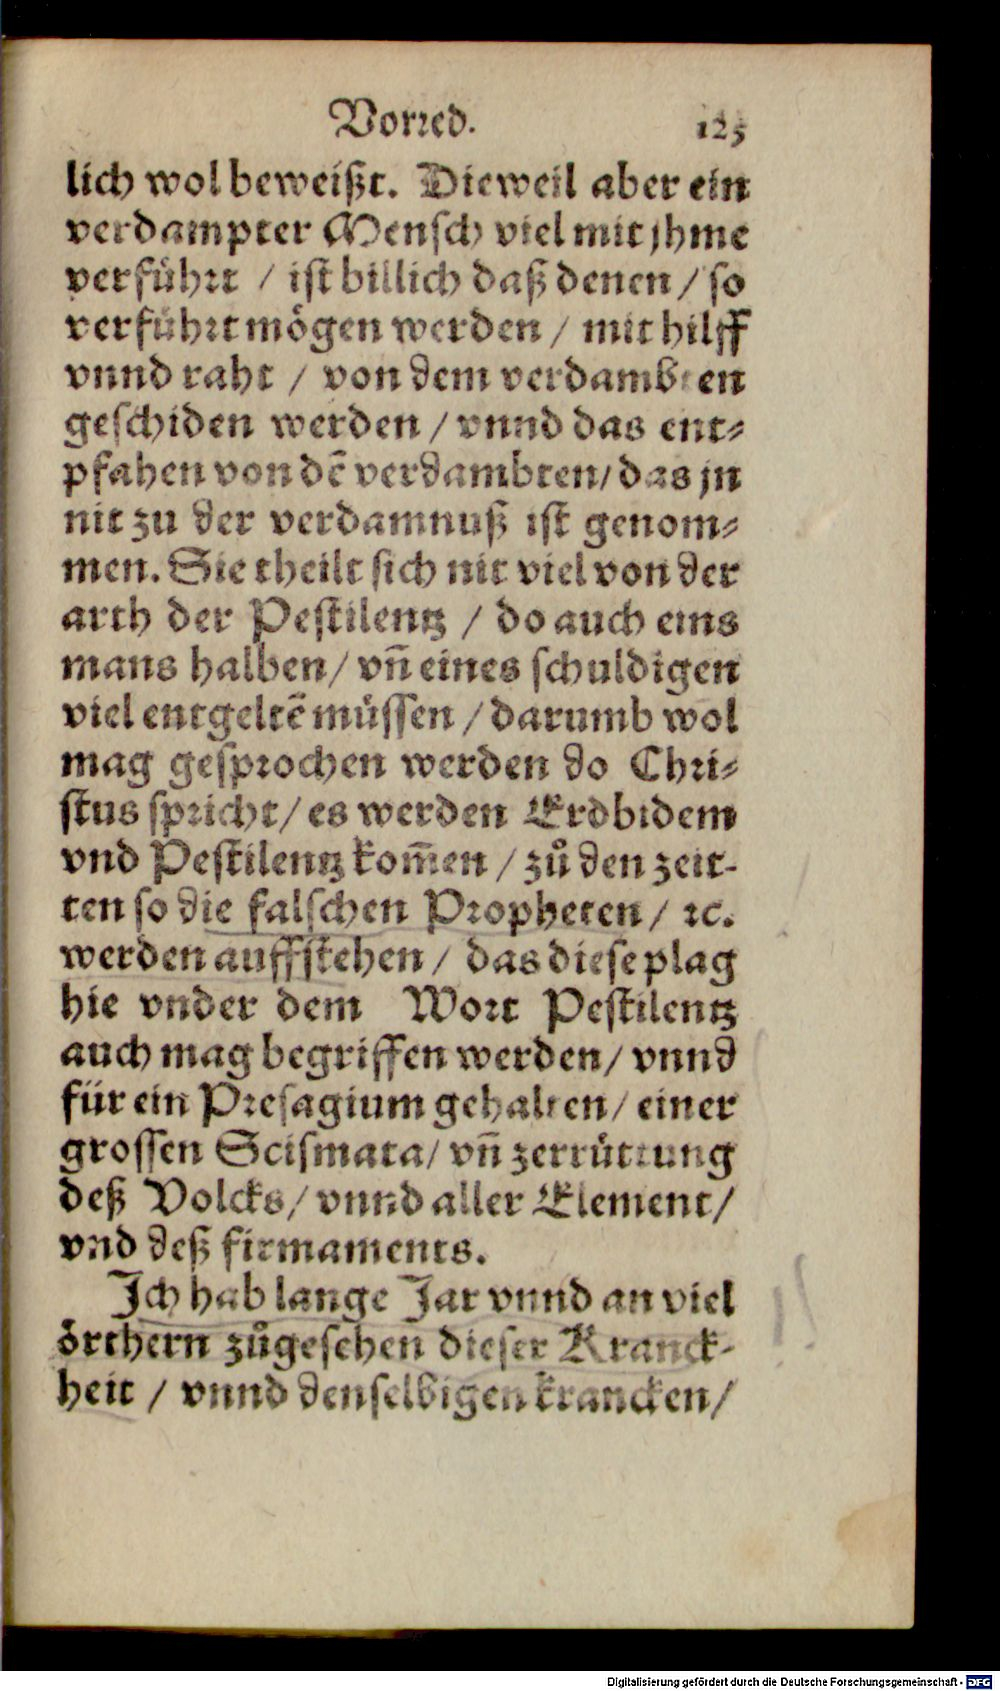 Vorred. 125
lich wol beweißt. Dieweil aber ein
verdampter Mensch viel mit jhme
verführt / ist billich daß denen / so
verführt mögen werden / mit hilff
vnnd raht / von dem verdambten
geschiden werden / vnnd das ent-
pfahen von dē verdambten / das jn
nit zu der verdamnuß ist genom-
men. Sie theilt sich nit viel von der
arth der Pestilentz / do auch eins
mans halben / vñ eines schuldigen
viel entgeltē müssen / darumb wol
mag gesprochen werden do Chri-
stus spricht / es werden Erdbidem
vnd Pestilentz kom̄en / zů den zeit-
ten so die falschen Propheten / ꝛc.
werden auffstehen / das diese plag
hie vnder dem Wort Pestilentz
auch mag begriffen werden / vnnd
für ein Presagium gehalten / einer
grossen Scismata / vñ zerrüttung
deß Volcks / vnnd aller Element /
vnd deß firmaments.
Ich hab lange Jar vnnd an viel
örthern zůgesehen dieser Kranck-
heit / vnnd denselbigen krancken /
Digitalisierung gefördert durch die Deutsche Forschungsgemeinschaft - DFG